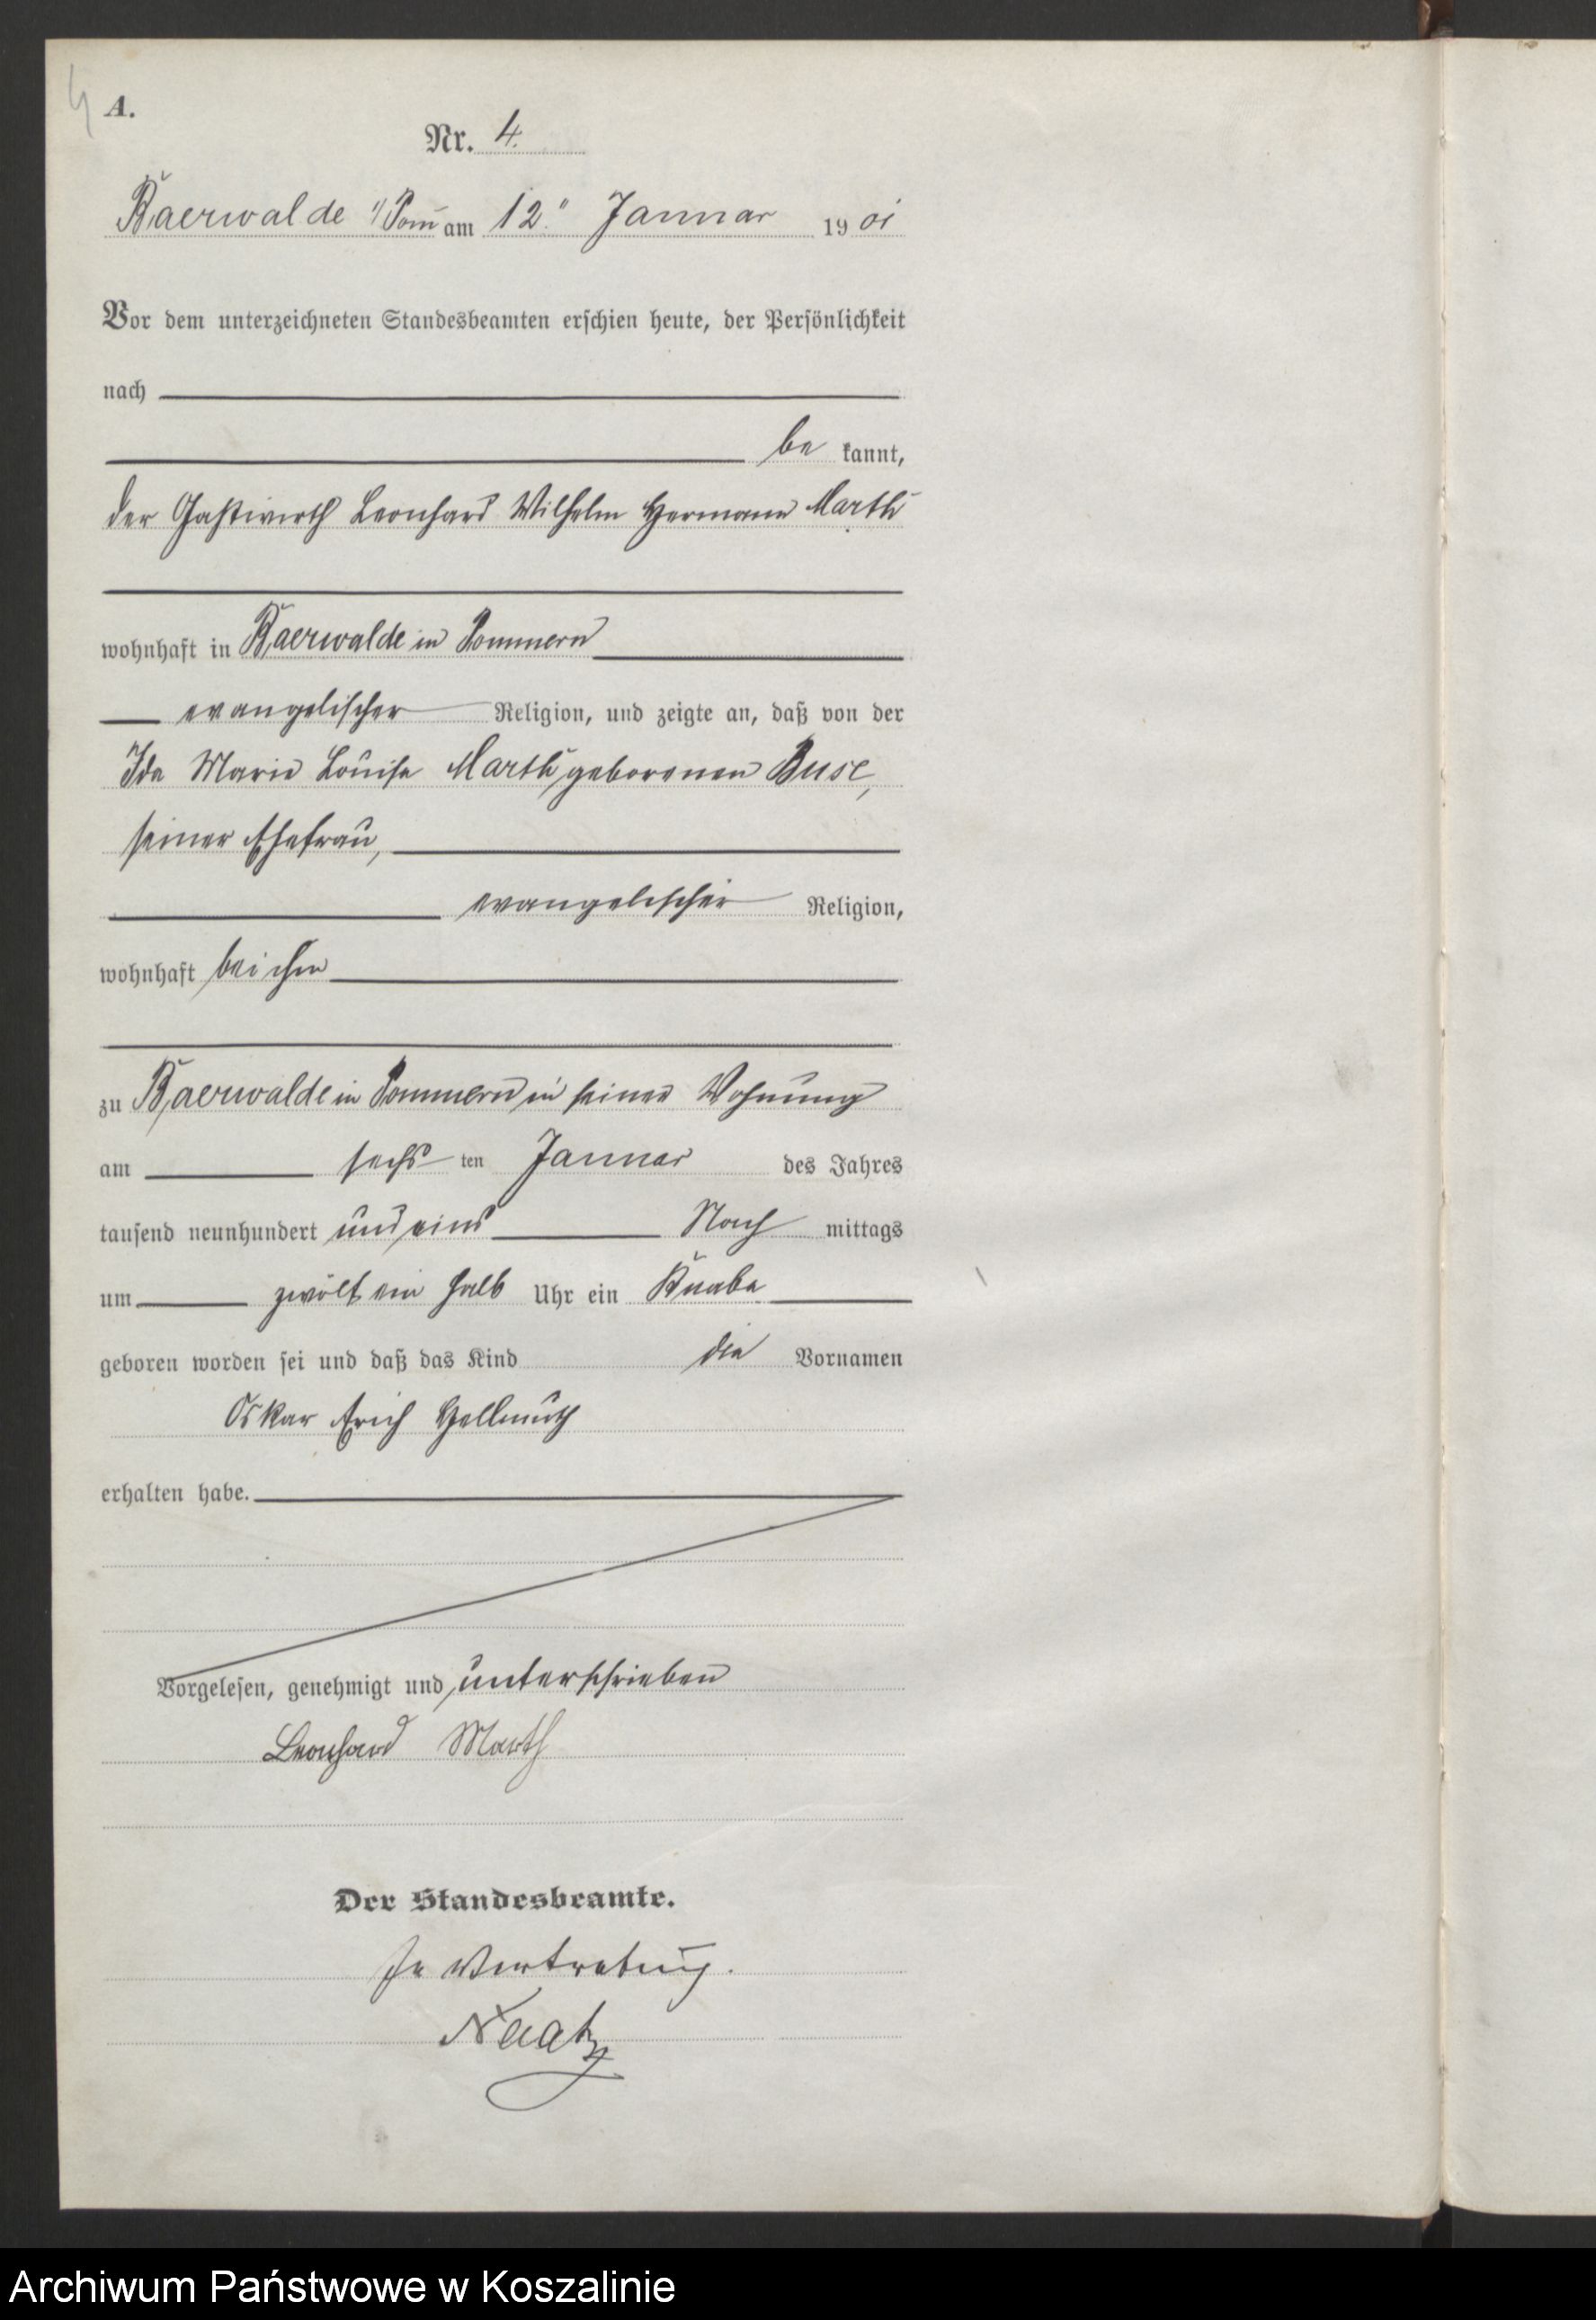 4
A.
Nr. 4.
Baerwalde i/Pom̅ am 12.ten Januar 1901
Vor dem unterzeichneten Standesbeamten erschien heute, der Persönlichkeit
nach
be kannt,
der Gastwirth Leonhard Wilhelm Hermann Marth
wohnhaft in Baerwalde in Pommern
evangelischer Religion, und zeigte an, daß von der
Ida Marie Louise Marth geborenen Buse,
seiner Ehefrau,
evangelischer Religion,
wohnhaft bei ihm
zu Baerwalde in Pommern in seiner Wohnung
am sechs ten Januar des Jahres
tausend neunhundert und eins Nach mittags
um zwölf ein halb Uhr ein Knabe
geboren worden sei und daß das Kind die Vornamen
Oskar Erich Hellmuth
erhalten habe.
Vorgelesen, genehmigt und unterschrieben
Leonhard Marth
Der Standesbeamte.
In Vertretung.
Naatz
Archiwum Państwowe w Koszalinie